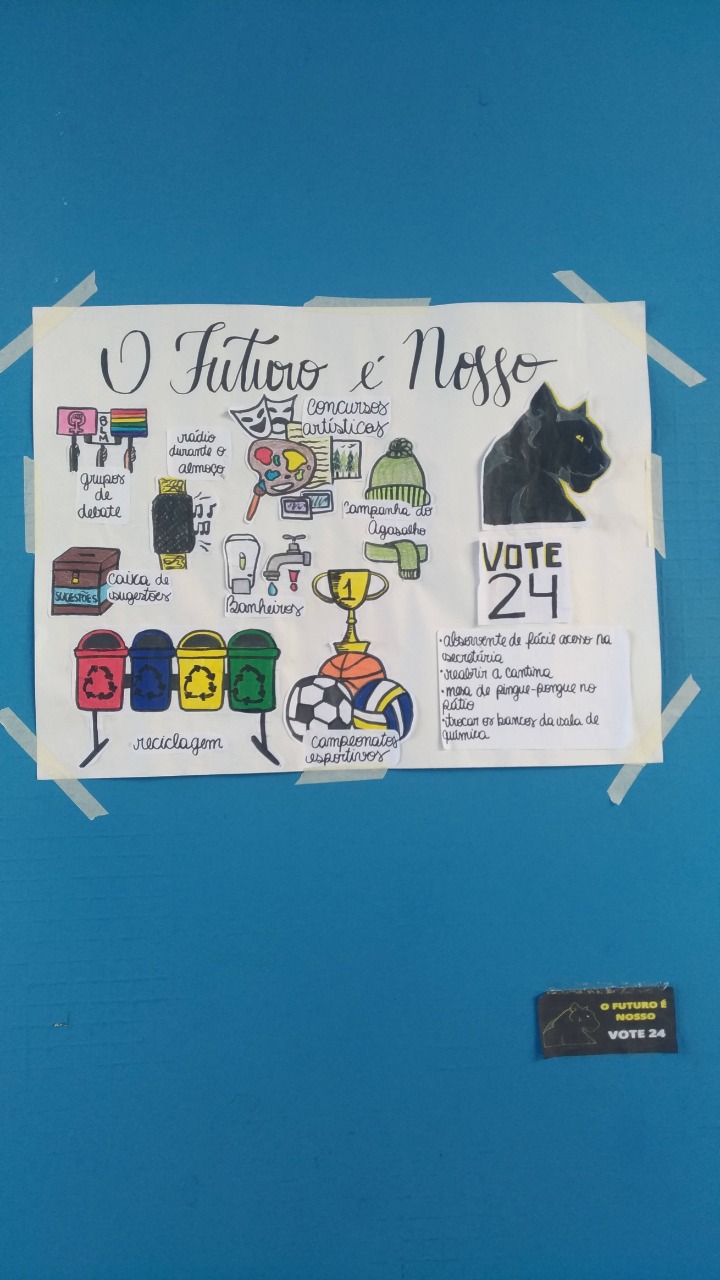 O Futuro é Nosso
BLM
grupos
de
debate
rádio
durante o
almoço
Concursos
artísticos
Campanha do
Agasalho
SUGESTÕES
caixa de
sugestões
Banheiros
1
reciclagem
campeonatos
esportivos
VOTE
24
• absorvente de fácil acesso na
secretária
• reabrir a cantina
• mesa de pingue-pongue no
pátio
• trocar os bancos da sala de
química
O FUTURO É
NOSSO
VOTE 24